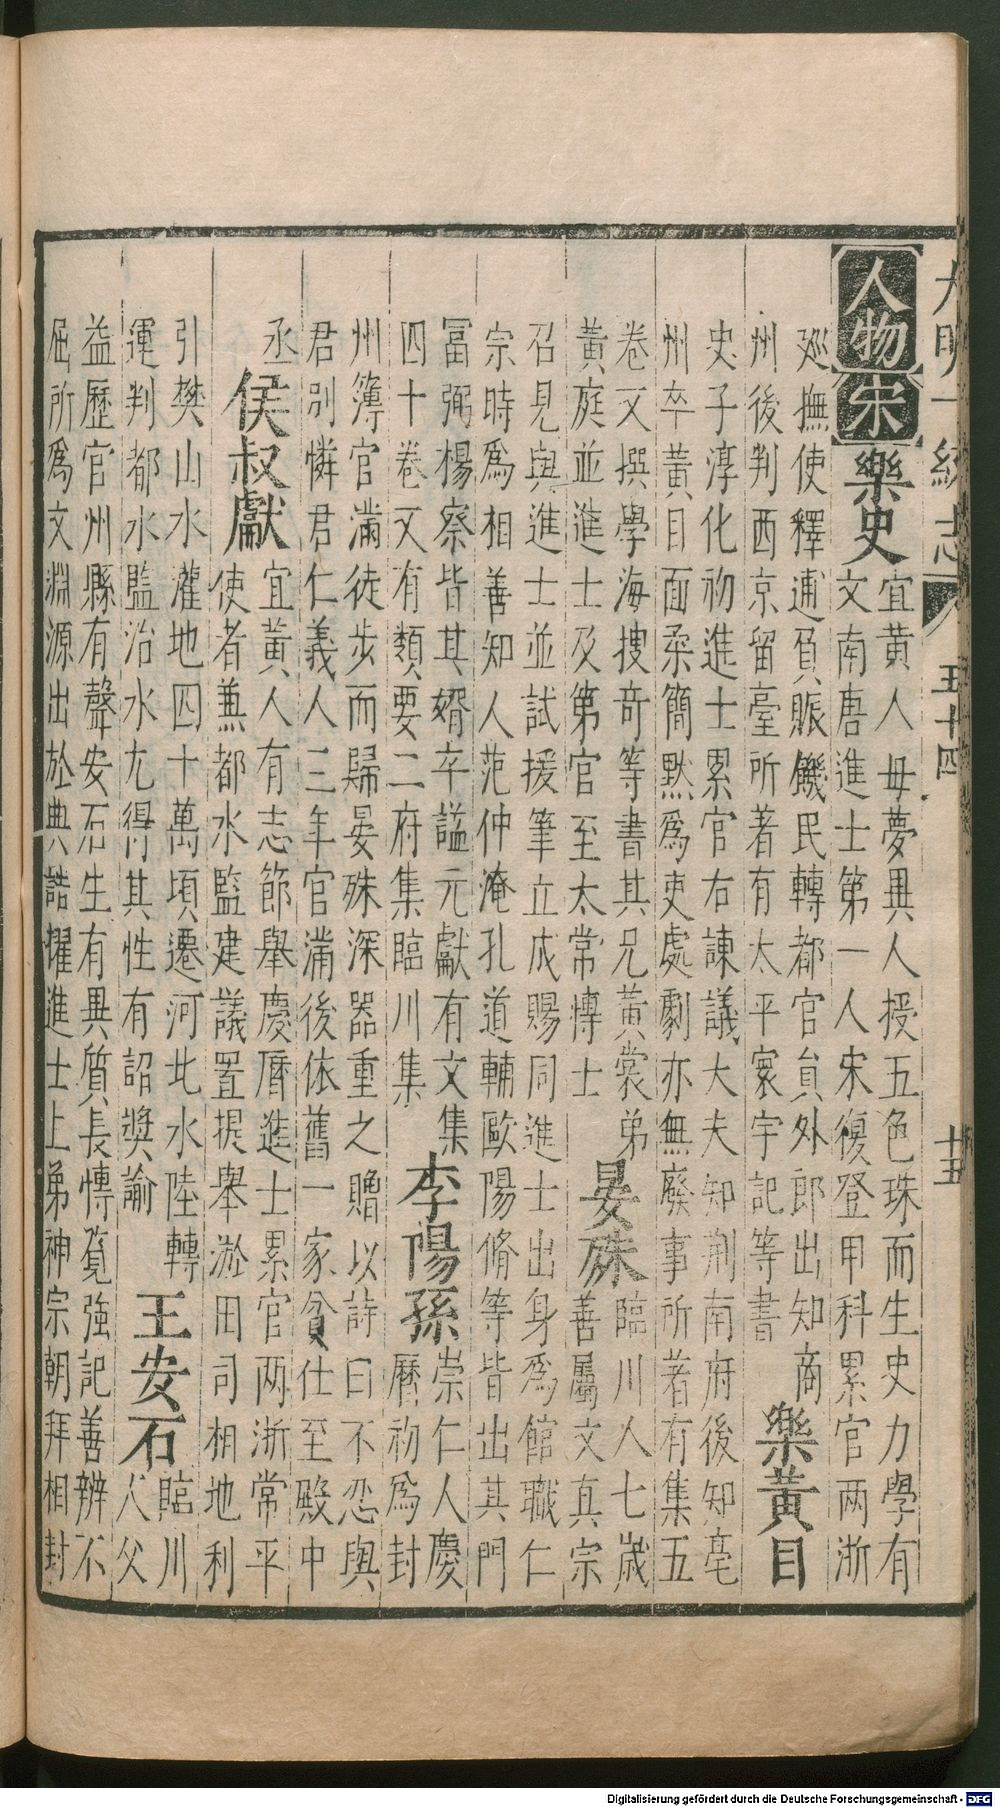 大明一統志 五十四 十五
人物 宋 樂史
宜黄人母夢異人授五色珠而生史力學有
文南唐進士第一人宋復登甲科累官两浙
廵撫使釋逋負賑饑民轉都官貟外郎出知商
州後判西京留臺所著有太平寰宇記等書
樂黄目
史子淳化初進士累官右諫議大夫知荆南府後知亳
州卒黄目面柔簡黙爲吏處劇亦無廢事所著有集五
卷又撰學海搜竒等書其兄黄裳弟
黄庭並進士及第官至太常慱士
晏殊
臨川人七歲
善屬文真宗
召見與進士並試援筆立成賜同進士出身爲館職仁
宗時爲相善知人范仲淹孔道輔歐陽脩等皆出其門
冨弼楊察皆其婿卒謚元獻有文集
四十卷又有類要二府集臨川集
李陽孫
崇仁人慶
曆初爲封
州簿官滿徒步而歸晏殊深器重之贈以詩曰不忍與
君别憐君仁義人三年官滿後依舊一家貧仕至殿中
丞
侯叔獻
宜黄人有志節舉慶曆進士累官两浙常平
使者兼都水監建議置提舉淤田司相地利
引樊山水灌地四十萬頃遷河北水陸轉
運判都水監治水尤得其性有詔奨諭
王安石
臨川
人父
益歷官州縣有聲安石生有異質長慱覧強記善辨不
屈所爲文淵源出於典誥擢進士上第神宗朝拜相封
Digitalisierung gefördert durch die Deutsche Forschungsgemeinschaft - DFG